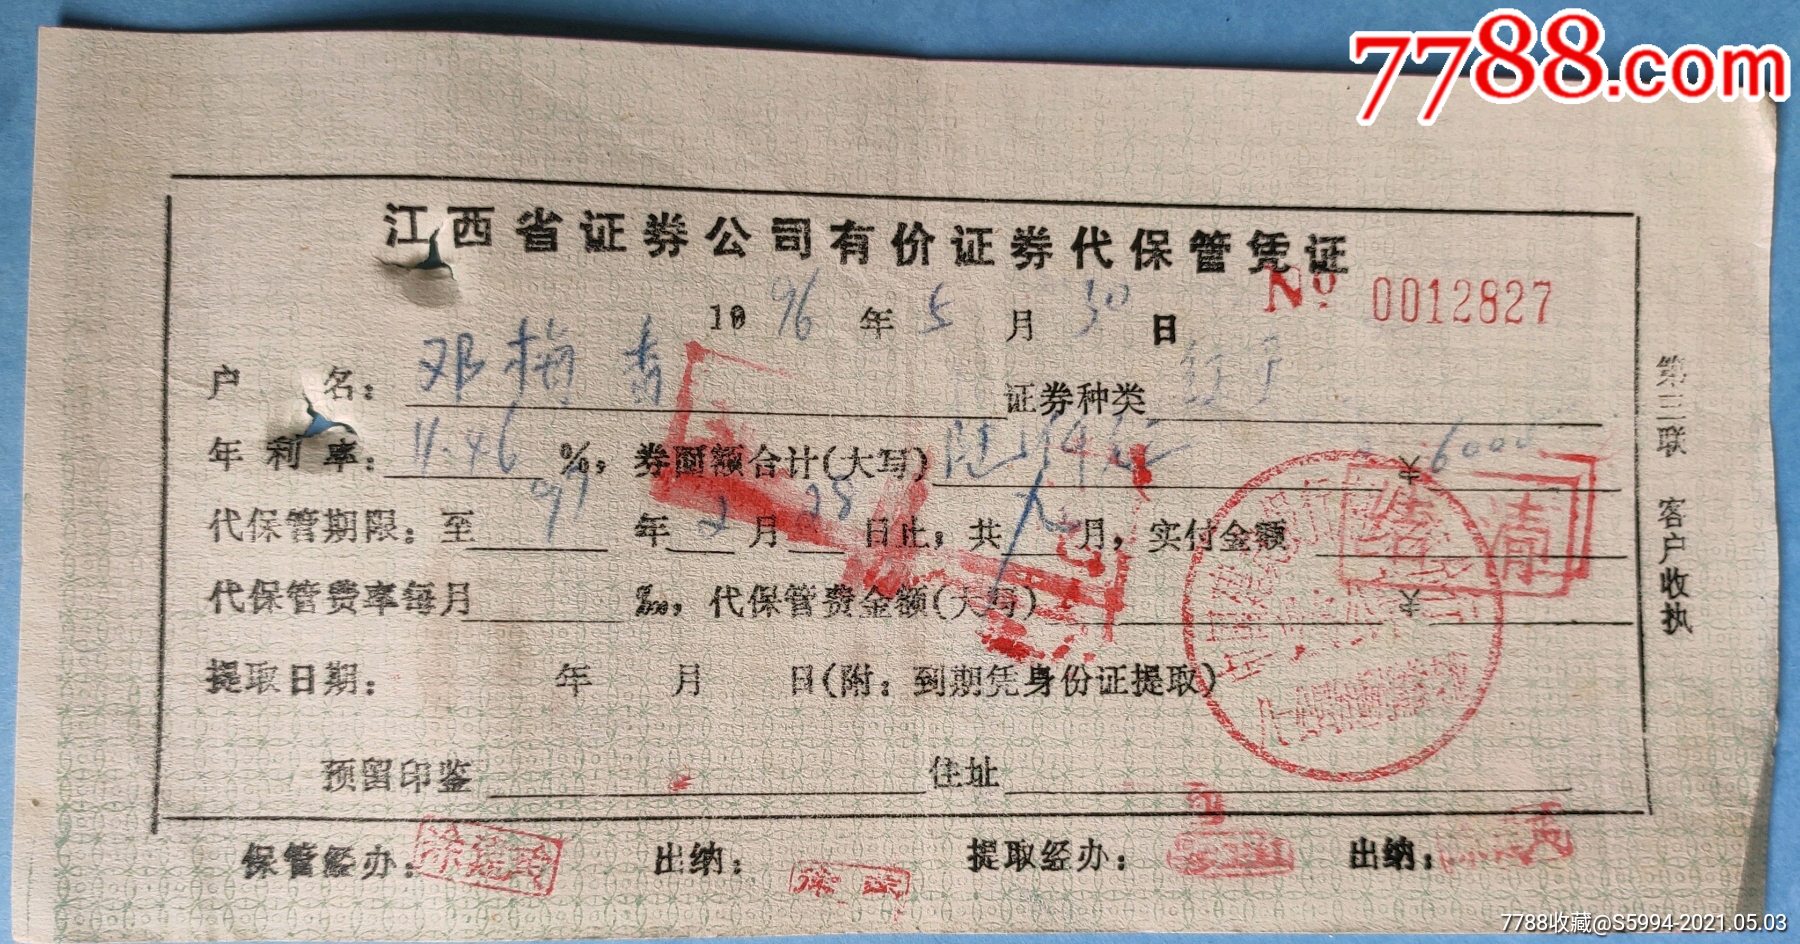 7788.com
江西省证券公司有价证券代保管凭证
1996年5月30日 No 0012827
户 名：邓梅 证券种类
年利率：11.46%，券面额合计(大写)陆仟元 6000
代保管期限：至97年2月28日止，共 月，实付金额
代保管费率每月 ‰，代保管费金额(大写)
提取日期： 年 月 日(附：到期凭身份证提取)
预留印鉴 住址
保管经办： 出纳： 提取经办： 出纳：
第三联 客户收执
结清
7788收藏@S5994-2021.05.03